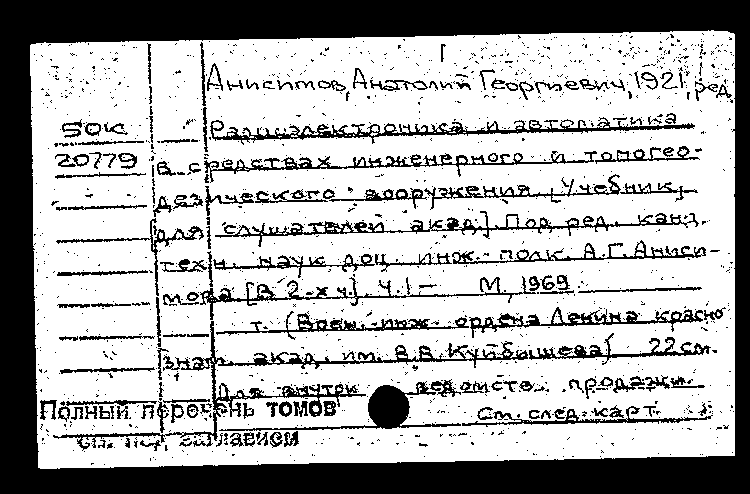 Анисимов, Анатолий Георгиевич, 1921, ред.
50к Радиоэлектроника и автоматика
20779 в средствах инженерного и топогео-
дезического вооружения. [Учебник
для слушателей акад.]. Под ред. канд.
техн. наук доц. инж.-полк. А.Г. Аниси-
мова [В 2-х ч]. Ч.1 — М, 1969
т. (Воен.-инж. ордена Ленина красно
знам. акад. им. В.В. Куйбышева) 22см.
Для внутри ведомств. продажи.
См. след. карт.
Полный перечень томов
см. под заглавием